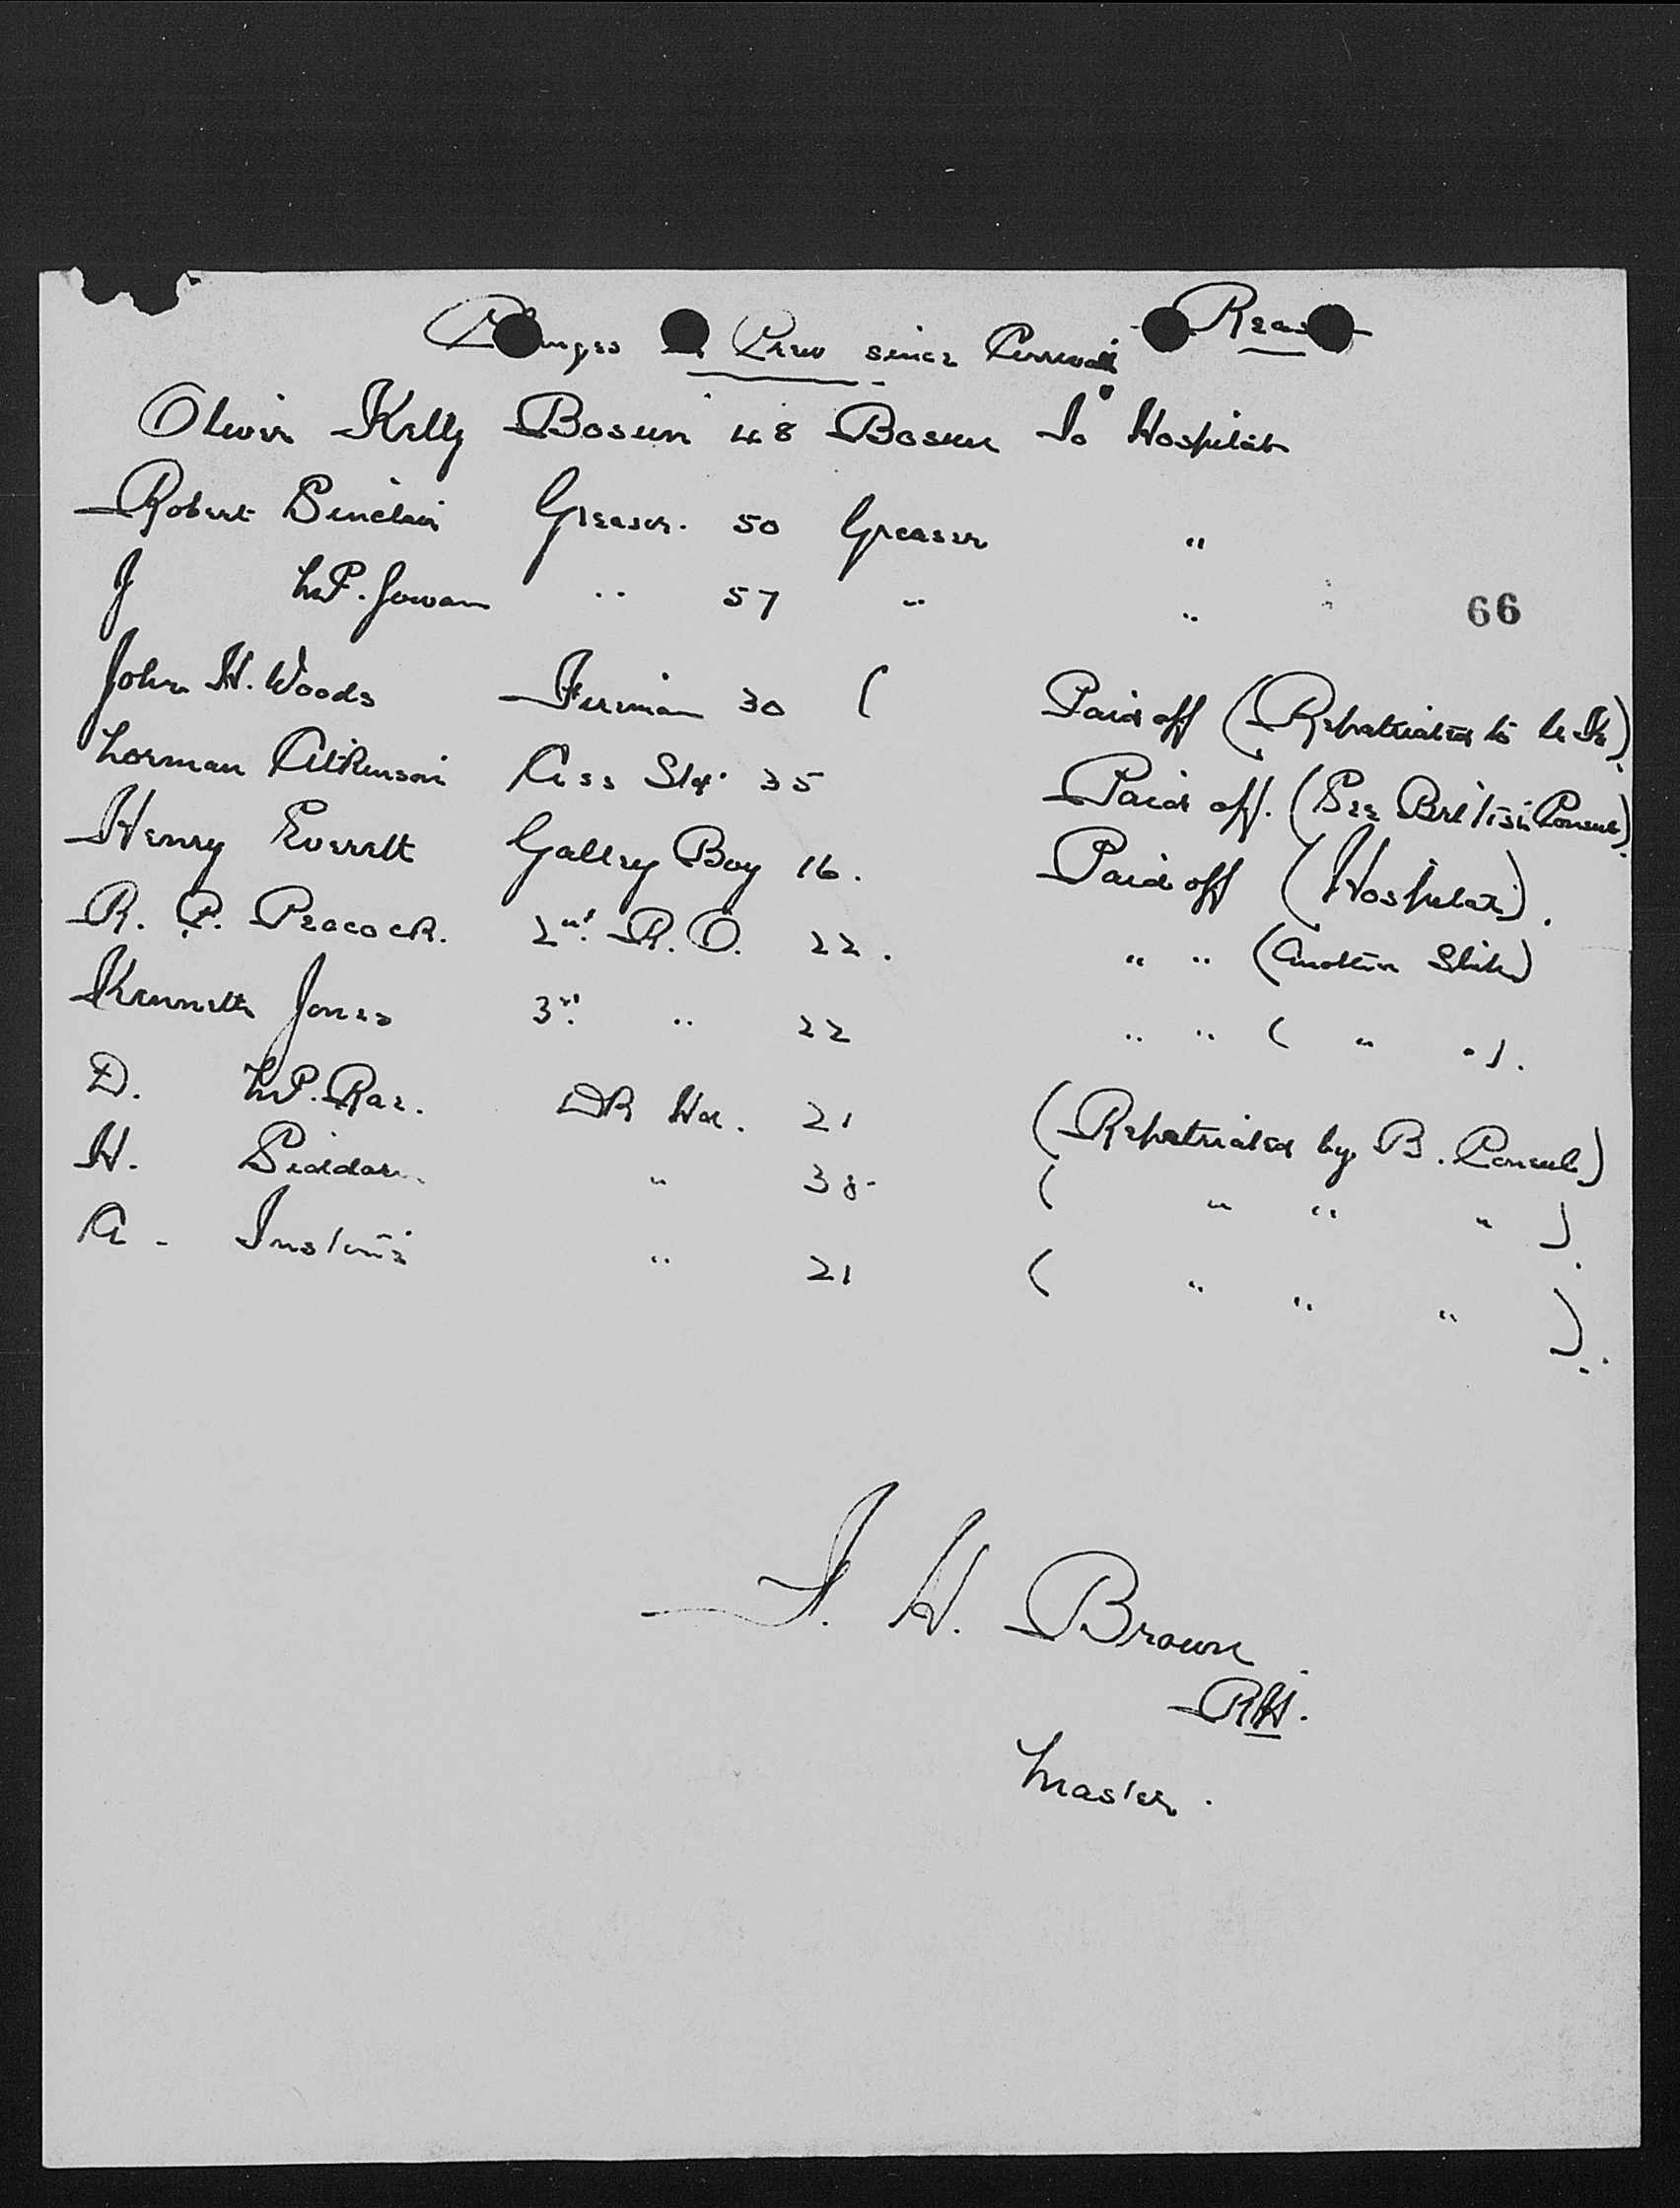 Changes in Crew since Arrival Reason
Oliver Kelly Bosun 48 Bosun To Hospital
Robert Sinclair Greaser. 50 Greaser "
J McGowan " 57 " "
66
John H. Woods Fireman 30 ( Paid off (Repatriated to U.K.)
Norman Atkinson Ass Std. 35 Paid off. (See British Consul).
Henry Everett Galley Boy 16. Paid off (Hospital).
R. P. Peacock. 2nd. R. O. 22. " " (Another Ship)
Kenneth Jones 3rd. " 22 " " ( " ").
D. McRae. 21 (Repatriated by B. Consul)
H. " 38 ( " " " ).
A. " 21 ( " " " ).
H. Brown
RH.
Master.